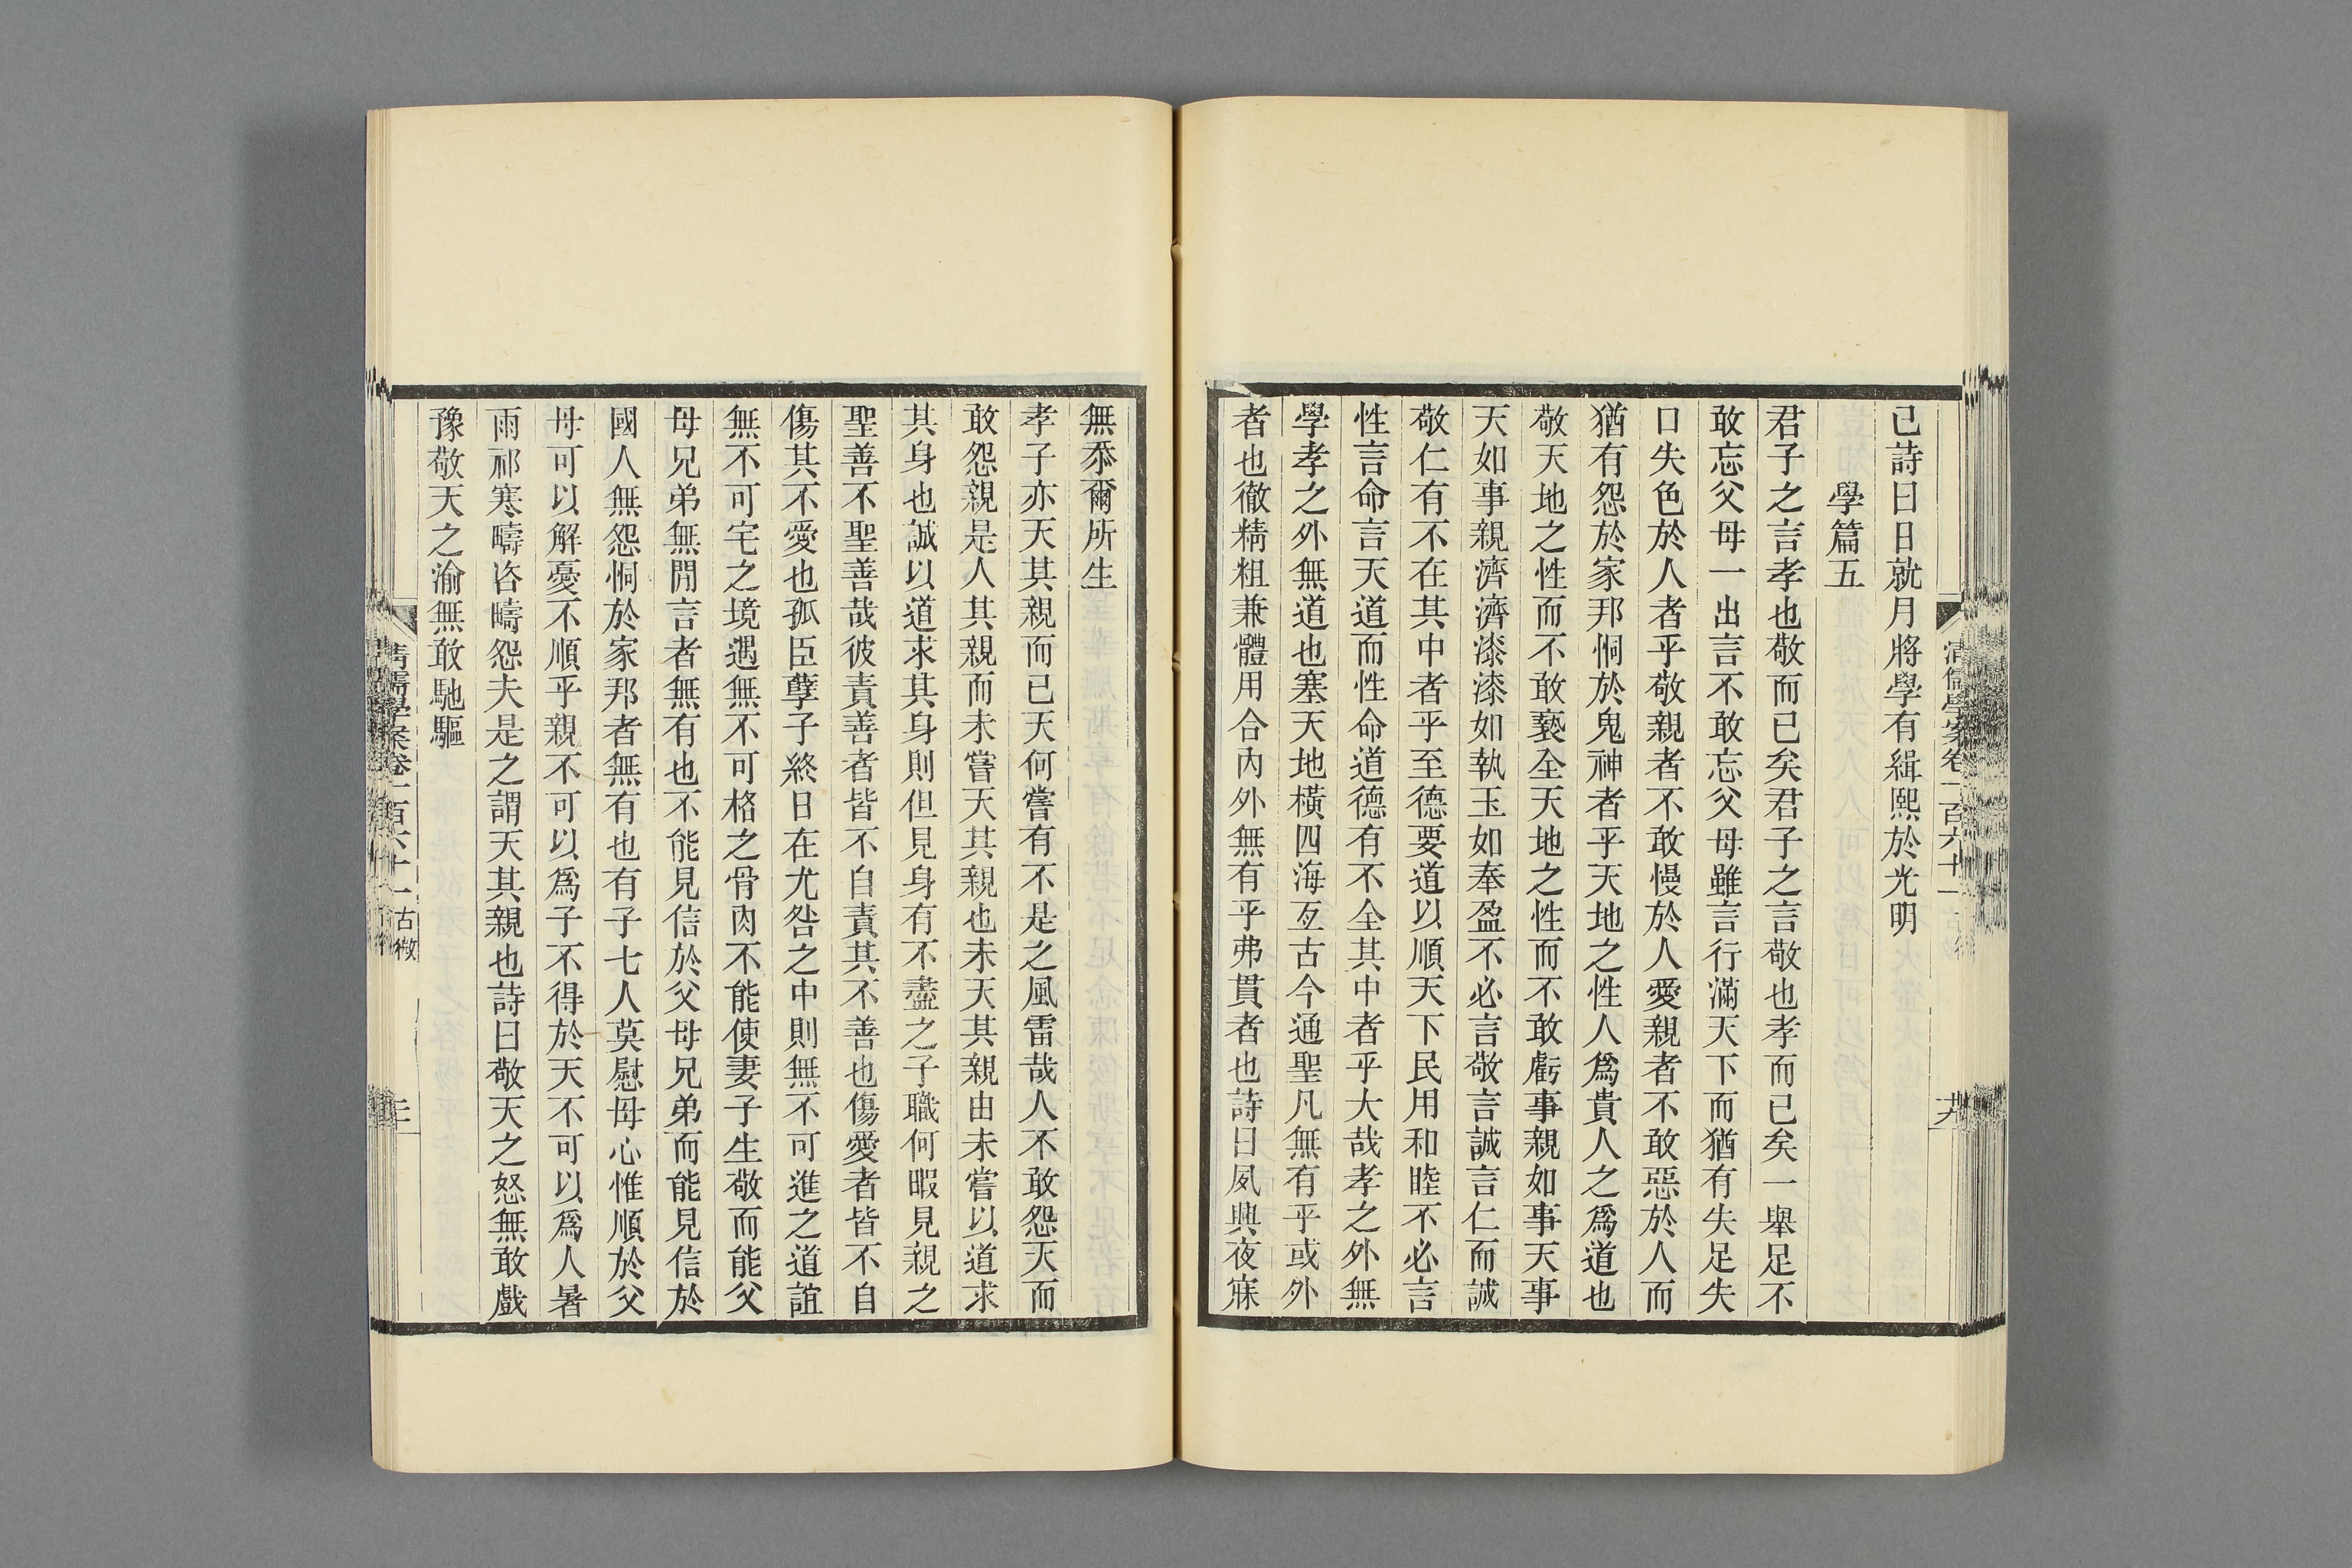 清儒學案卷一百六十一
己詩曰日就月將學有緝熙於光明
學篇五
君子之言孝也敬而已矣君子之言敬也孝而已矣一舉足不
敢忘父母一出言不敢忘父母雖言行滿天下而猶有失足失
口失色於人者乎敬親者不敢慢於人愛親者不敢惡於人而
猶有怨於家邦恫於鬼神者乎天地之性人爲貴人之爲道也
敬天地之性而不敢褻全天地之性而不敢虧事親如事天事
天如事親濟濟漆漆如執玉如奉盈不必言敬言誠言仁而誠
敬仁有不在其中者乎至德要道以順天下民用和睦不必言
性言命言天道而性命道德有不全其中者乎大哉孝之外無
學孝之外無道也塞天地橫四海亙古今通聖凡無有乎或外
者也徹精粗兼體用合內外無有乎弗貫者也詩曰夙興夜寐
無忝爾所生
孝子亦天其親而已天何嘗有不是之風雷哉人不敢怨天而
敢怨親是人其親而未嘗天其親也未天其親由未嘗以道求
其身也誠以道求其身則但見身有不盡之子職何暇見親之
聖善不聖善哉彼責善者皆不自責其不善也傷愛者皆不自
傷其不愛也孤臣孽子終日在尤咎之中則無不可進之道誼
無不可宅之境遇無不可格之骨肉不能使妻子生敬而能父
母兄弟無閒言者無有也不能見信於父母兄弟而能見信於
國人無怨恫於家邦者無有也有子七人莫慰母心惟順於父
母可以解憂不順乎親不可以爲子不得於天不可以爲人暑
雨祁寒疇咨疇怨夫是之謂天其親也詩曰敬天之怒無敢戲
豫敬天之渝無敢馳驅
清儒學案卷一百六十一 古微